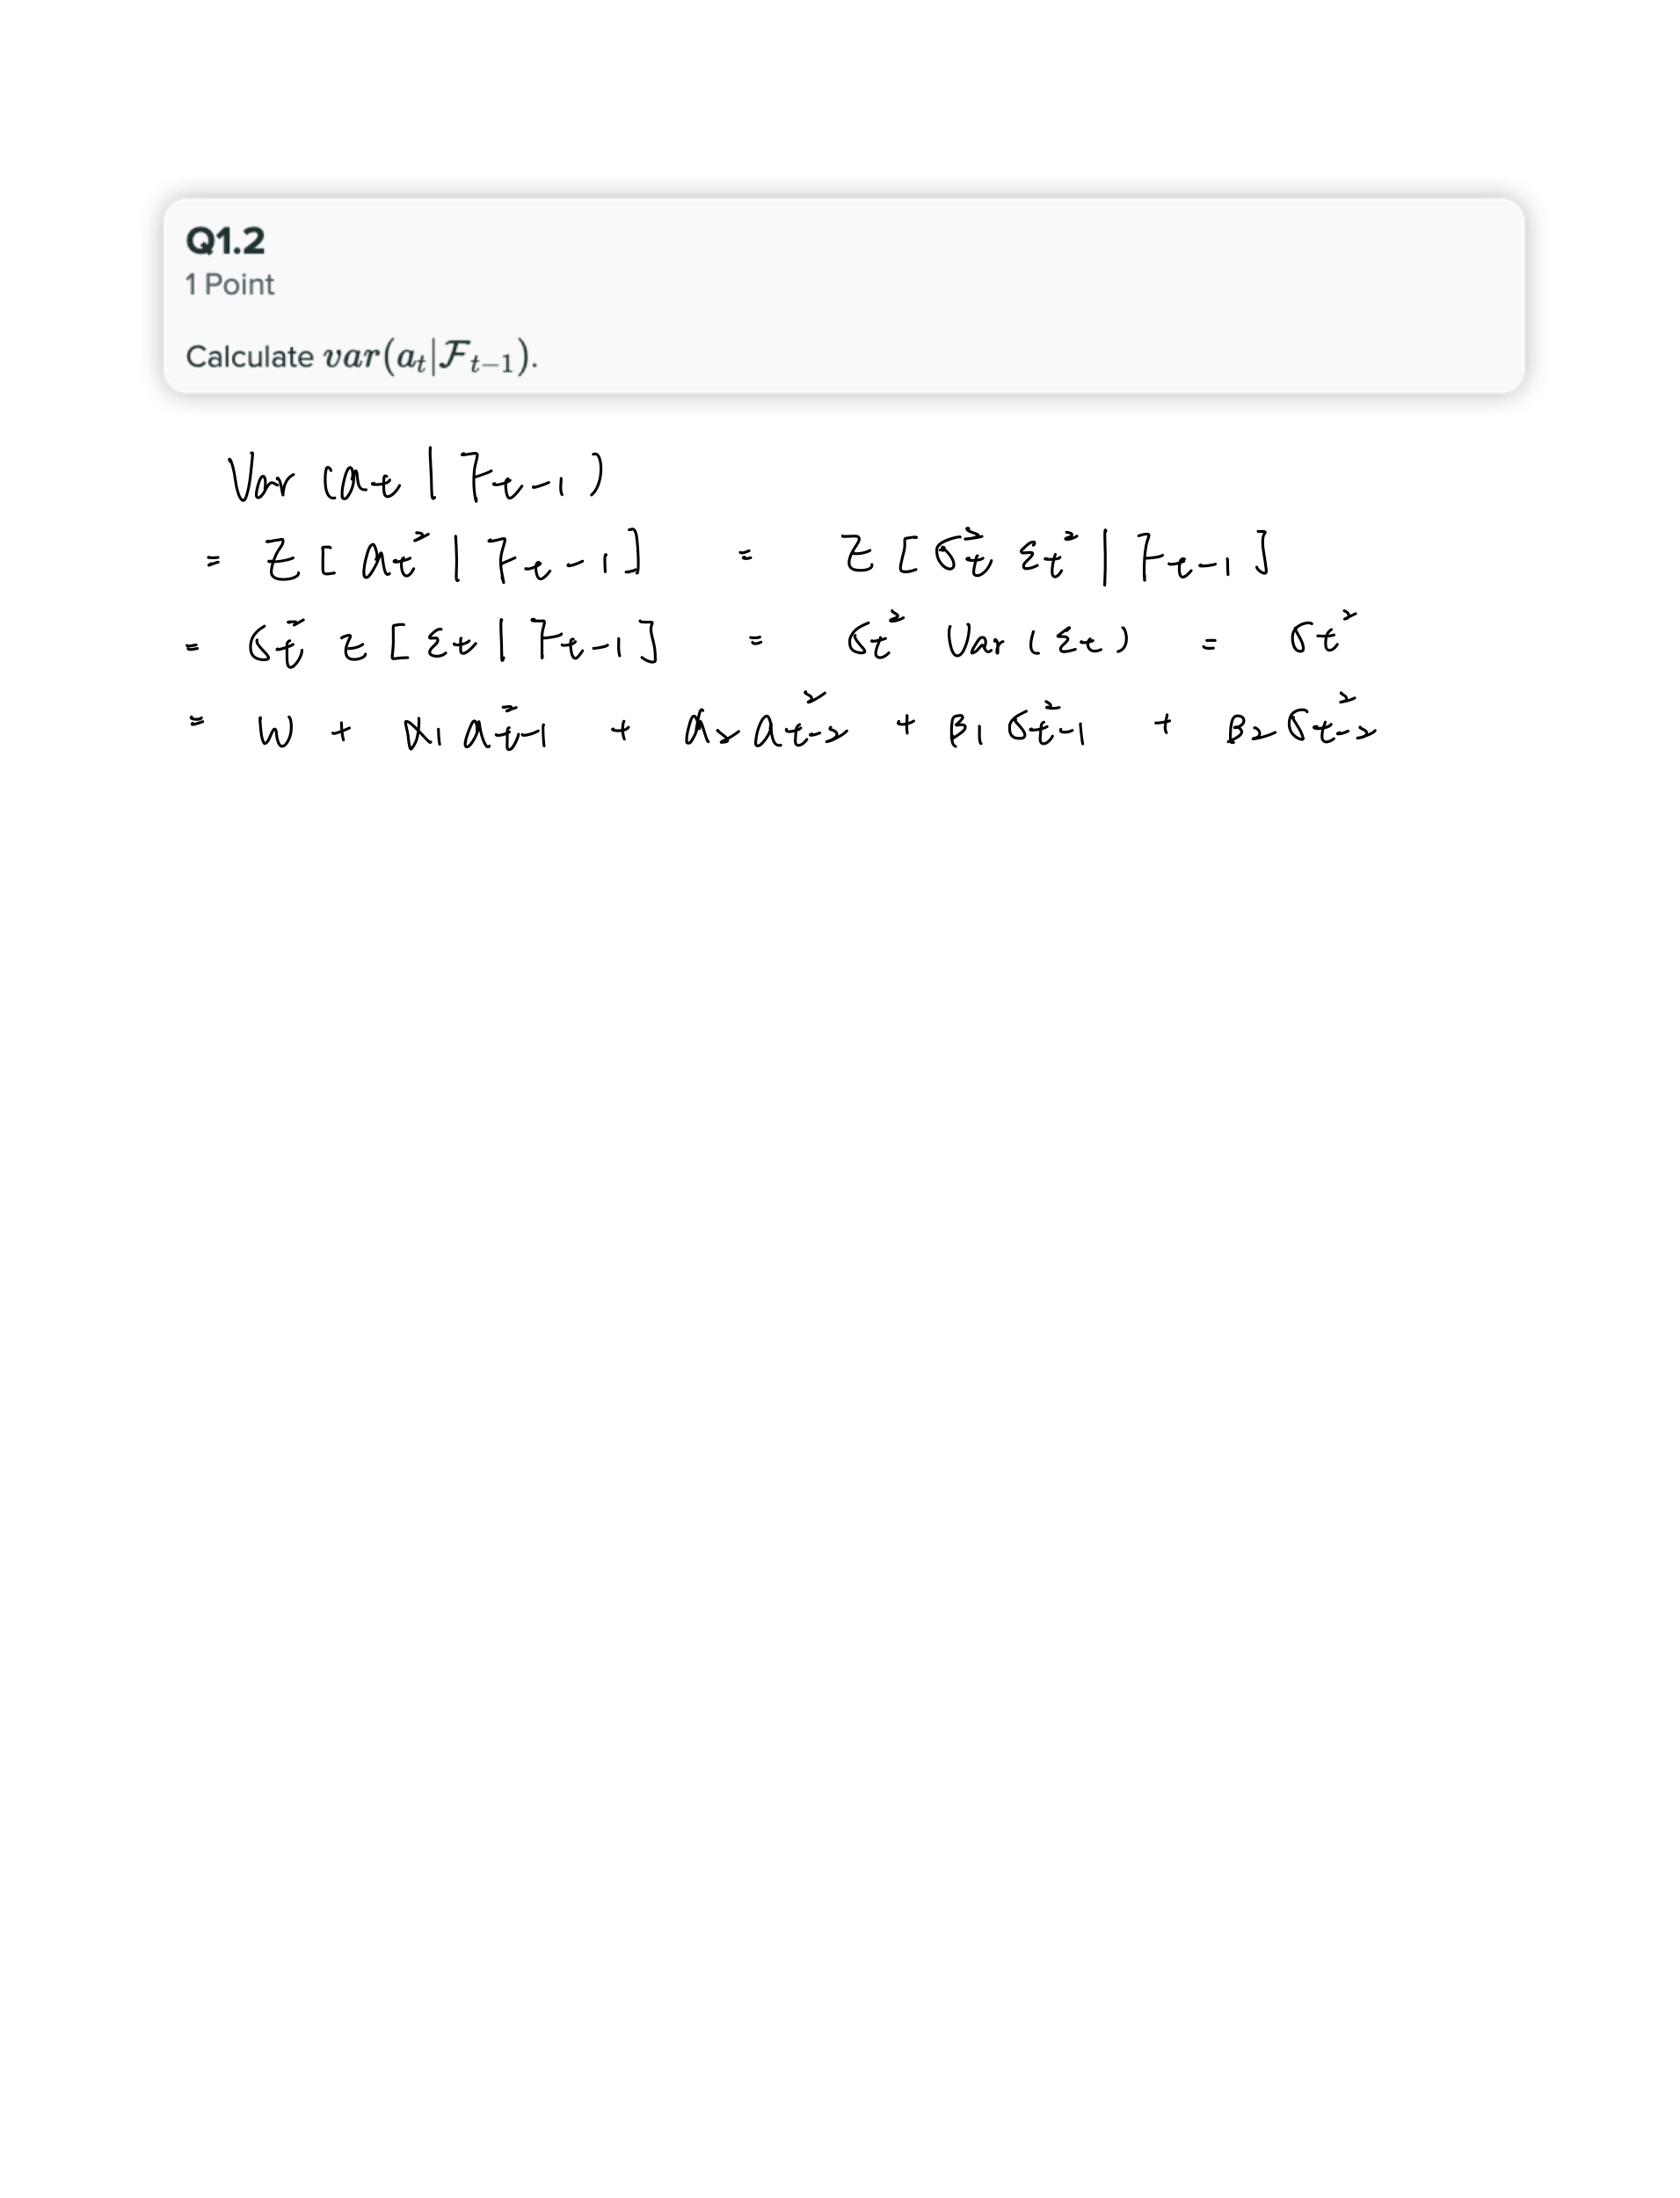 Q1.2
1 Point
Calculate var(a_t|𝓕_{t−1}).
Var (a_t | F_{t-1})
= E[a_t² | F_{t-1}] = E[σ_t² ε_t² | F_{t-1}]
= σ_t² E[ε_t | F_{t-1}] = σ_t² Var(ε_t) = σ_t²
= w + α₁ a²_{t-1} + α₂ a_{t-2}² + β₁ σ²_{t-1} + β₂ σ_{t-2}²